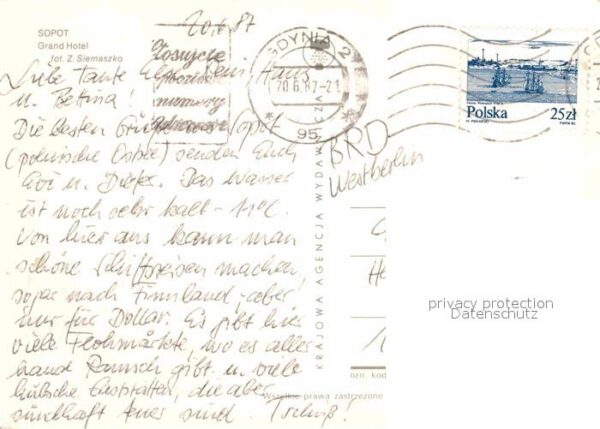 20.6.87
SOPOT
Grand Hotel
fot. Z. Siemaszko
GDYNIA 2
20.6.87-21
95
Polska 25zł
Liebe Tante
u. Bettina!
Die besten Grüße aus Sopot
(polnische Ostsee) senden Euch
u. Das Wasser
ist noch sehr kalt - 11°C.
Von hier aus kann man
schöne Schiffsreisen machen,
sogar nach Finnland, aber!
nur für Dollar. Es gibt hier
viele Flohmärkte, wo es aller-
hand Ramsch gibt u. viele
hübsche Gaststätten, die aber
sündhaft teuer sind. Tschüß!
BRD
Westberlin
KRAJOWA AGENCJA WYDAWNICZA
privacy protection
Datenschutz
ozn. kod
Wszelkie prawa zastrzeżone